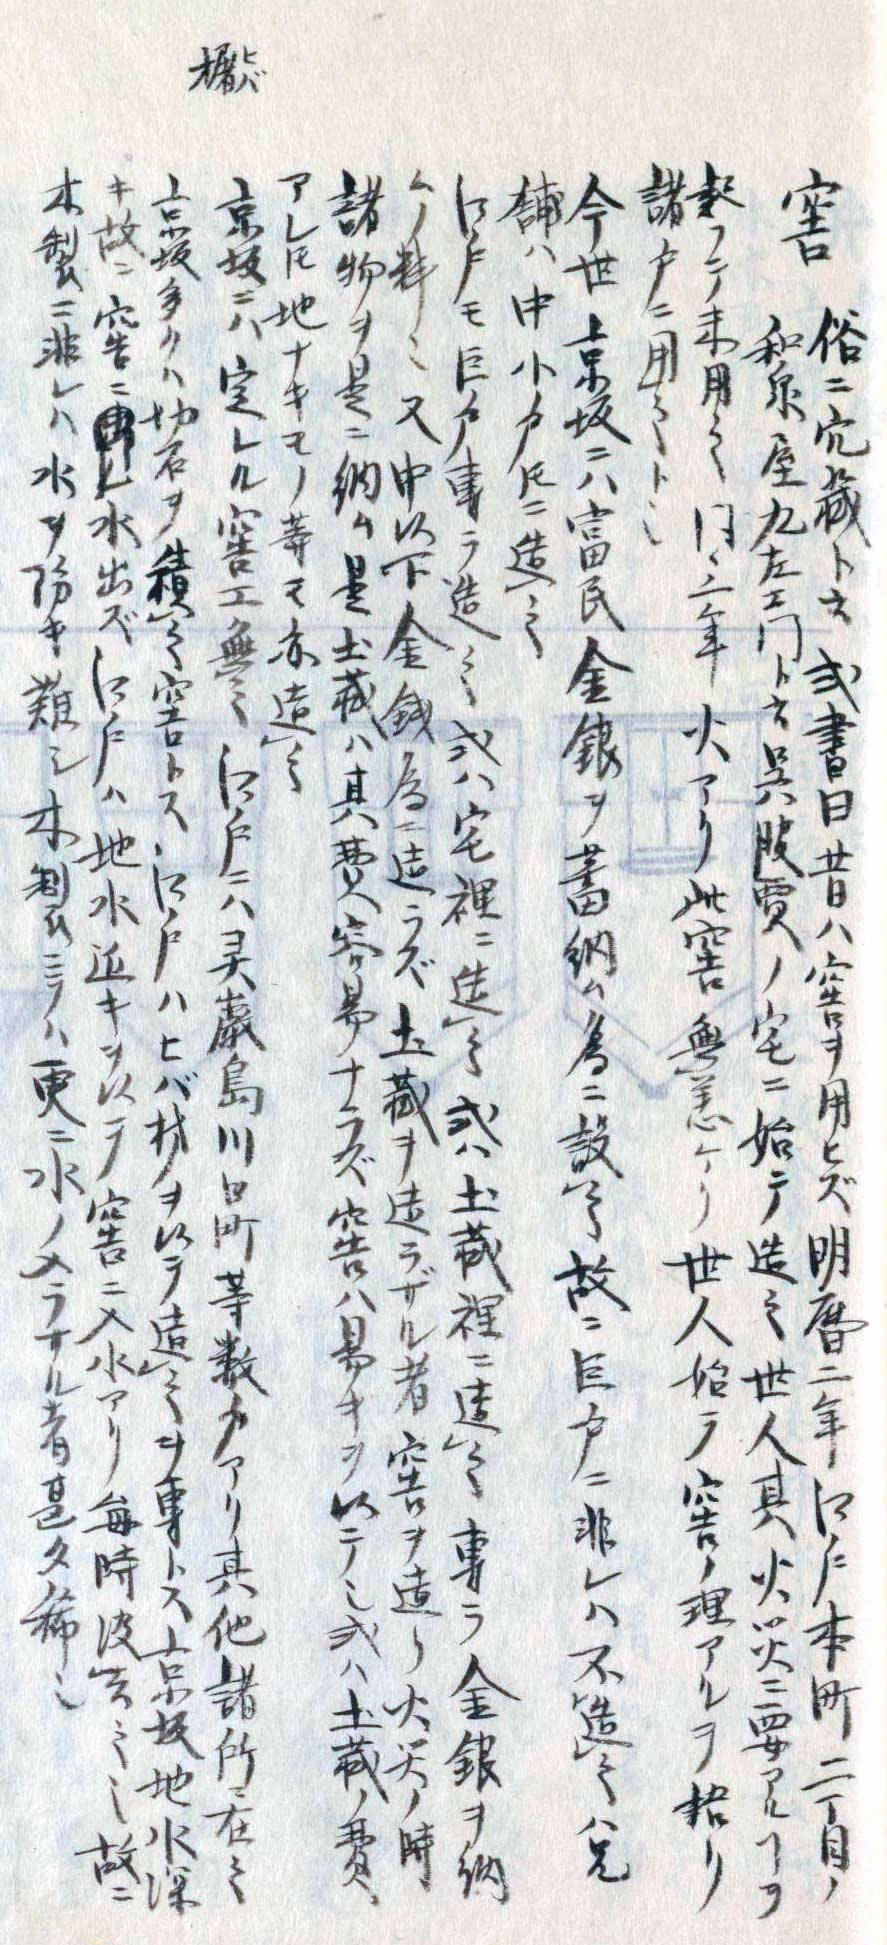 窖 俗ニ穴藏ト云 或書曰 昔ハ窖ヲ用ヒズ 明暦二年 江戸本町二丁目ノ
和泉屋九左エ門ト云呉服賈ノ宅ニ始テ造之 世人其火災ニ要アルヿヲ
未用之 同三年火アリ 此窖無恙ケリ 世人始テ窖ノ理アルヲ
諸戸ニ用之ト也
今世京坂ニハ富民金銀ヲ蓄納ム為ニ設ク 故ニ巨戸ニ非レハ不造之
舗ハ中小戸トモニ造之
江戸モ巨戸専ラ造之 或ハ宅裡ニ造之 或ハ土藏裡ニ造之 専ラ金銀ヲ納
ムノ料也 又中以下金銭為ニ造ラズ 土藏ヲ造ラザル者窖ヲ造リ火災ノ時
諸物ヲ是ニ納ム 是土藏ハ其費容易ナラズ 窖ハ易キヲ以テ也 或ハ土藏ノ費
アレトモ地ナキモノ等モ亦造之
京坂ニハ定レル窖工無之 江戸ニハ灵巌島川口町等数戸アリ 其他諸所ニ在之
京坂多クハ切石ヲ積テ窖トス 江戸ハヒバ材ヲ以テ造之ヲ専トス 京坂地水深
キ故ニ窖ニ水出ズ 江戸ハ地水近キヲ以テ窖ニ入水アリ 毎時汲去之也 故ニ
木製ニ非レハ水ヲ防キ難シ 木製ニテハ更ニ水ノ入ラサル者甚タ稀也
ヒバ